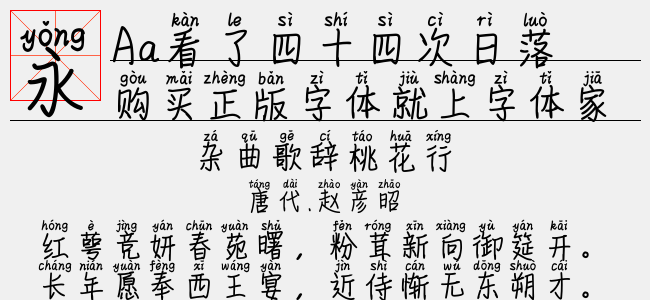 yǒng
永
kàn le sì shí sì cì rì luò
Aa看了四十四次日落
gòu mǎi zhèng bǎn zì tǐ jiù shàng zì tǐ jiā
购买正版字体就上字体家
zá qū gē cí táo huā xíng
杂曲歌辞桃花行
táng dài zhào yàn zhāo
唐代.赵彦昭
hóng è jìng yán chūn yuàn shǔ fěn róng xīn xiàng yù yán kāi
红萼竞妍春苑曙，粉茸新向御筵开。
cháng nián yuàn fèng xī wáng yàn jìn shì cán wú dōng shuò cái
长年愿奉西王宴，近侍惭无东朔才。